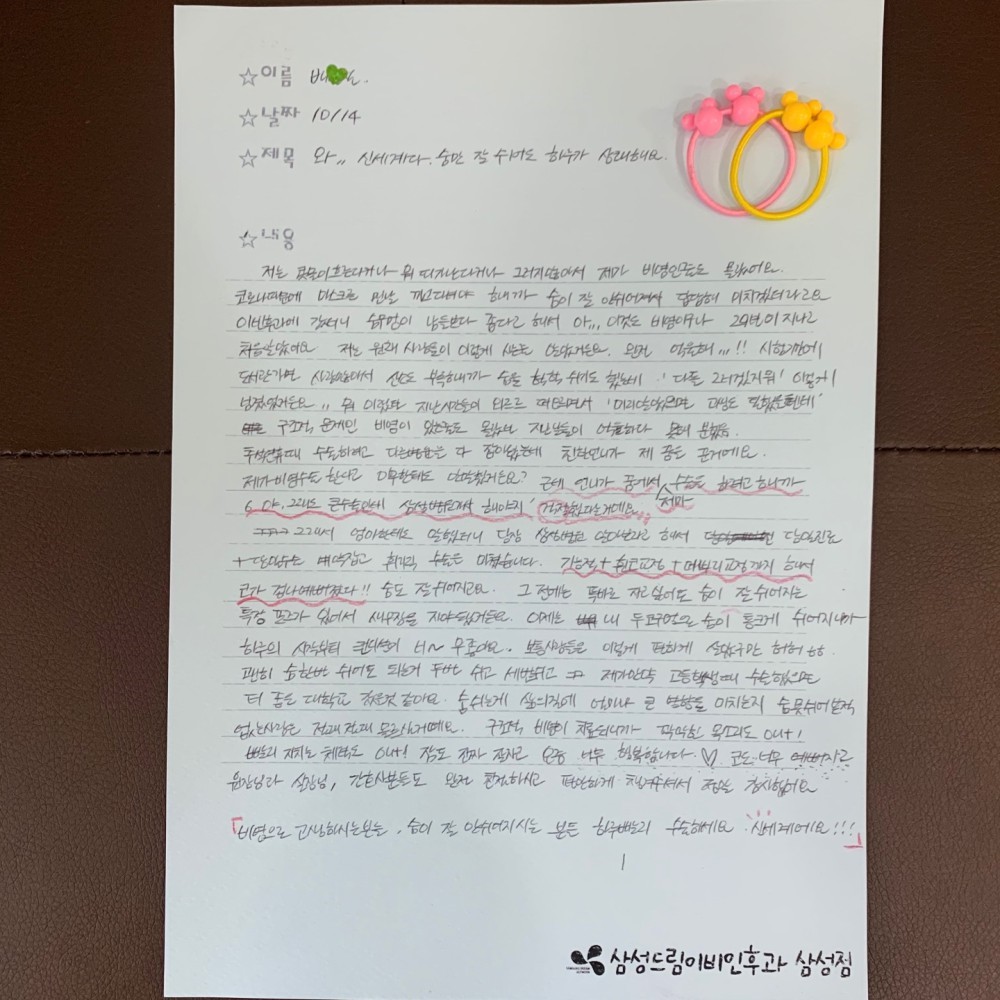 ☆이름 배 .
☆날짜 10/14
☆제목 와,, 신세계다. 숨만 잘 쉬어도 하루가 상쾌해요.
☆내용
저는 콧물이 흐른다거나 뭐 따가난다거나 그러지않아서 제가 비염인줄도 몰랐어요.
코로나때문에 마스크를 맨날 끼고다녀야 하니까 숨이 잘 안쉬어져서 답답해 미치겠더라고요
이비인후과에 갔더니 숨구멍이 남들보다 좁다고 해서 아,,, 이것도 비염이구나 29년이 지나고
처음알았어요 저는 원래 사람들이 이렇게 사는줄 알았거든요. 완전 억울해,,,!! 시험기간에
도서관가면 사람많아서 산소 부족하니까 숨을 헉헉 쉬기도 했는데 '다들 그러겠지뭐' 이렇게
넘겼었거든요,, 뭐 이런 지난시간들이 와르르 떠오르면서 '미리알았으면 공부도 잘했을텐데'
구조적 문제인 비염이 있는줄도 몰랐던 지난날들이 억울하다 못해 분했음.
추석연휴때 수술하려고 다른병원은 다 잡아놨는데 친한언니가 제 꿈을 꾼거에요.
제가 비염수술 한다고 아무한테도 말안했거든요? 근데 언니가 꿈에서 수술을 하려고 하니까
제가
'야, 그래도 큰수술인데 삼성병원가서 해야지' 걱정했다는거에요
그래서 엄마한테도 말했더니 당장 삼성병원 알아보라고 해서 당일진료
+당일수술 예약잡고 휘리릭 수술을 마쳤습니다. 기능적+휜코교정+매부리교정까지 해서
코가 겁나예뻐졌다!! 숨도 잘쉬어지고요. 그 전에는 똑바로 자고싶어도 숨이 잘 쉬어지는
특정 포즈가 있어서 새우잠을 자야됐거든요. 이제는 내 두콧구멍으로 숨이 통크게 쉬어지니까
하루의 시작부터 컨디션이 너~무좋아요. 보통사람들은 이렇게 편하게 살았구만 허허
괜히 숨한번 쉬어도 되는거 두번 쉬고 세번쉬고 제가만약 고등학생때 수술했으면
더 좋은 대학교 갔을것 같아요. 숨쉬는게 삶의질에 얼마나 큰 영향을 미치는지 숨못쉬어본적
없는사람은 전혀전혀 모르실거에요. 구조적 비염이 치료되니까 막막한 목소리도 out!
빨리 지치는 체력도 out! 잠도 진짜 잘자고 요즘 너무 행복합니다. ♡ 코도 너무 예쁘지고
원장님과 실장님, 간호사분들도 완전 친절하시고 편안하게 해주셔서 정말 감사했어요
「비염으로 고생하시는분들, 숨이 잘 안쉬어지시는 분들 하루빨리 수술하세요 신세계에요!!!」
삼성드림이비인후과 삼성점